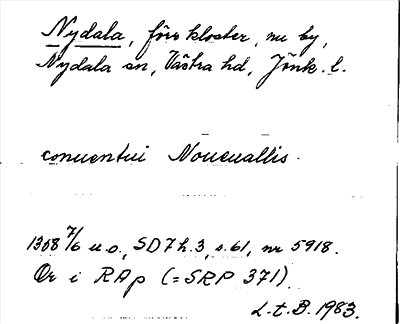 Nydala, förr kloster, nu by,
Nydala sn, Västra hd, Jönk. l.
conuentui Noueuallis.
1308 7/6 u.o., SD 7 h. 3, s. 61, nr 5918.
Or i RAp (= SRP 371)
L.t.B. 1983.